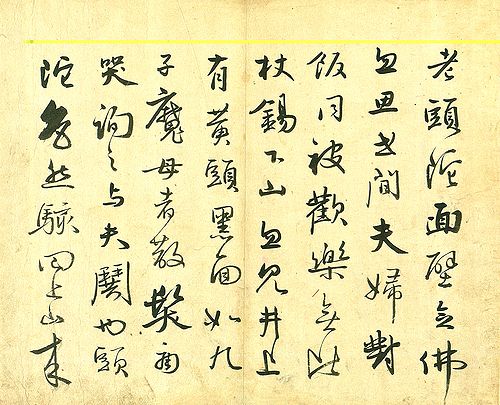 老頭陀面壁念佛
忽思世間夫婦對
飯同被歡樂無比
杖錫下山忽見井上
有黃頭黑面如九
子魔母者散髮而
哭詢之與夫鬪也頭
陀然駭回上山來